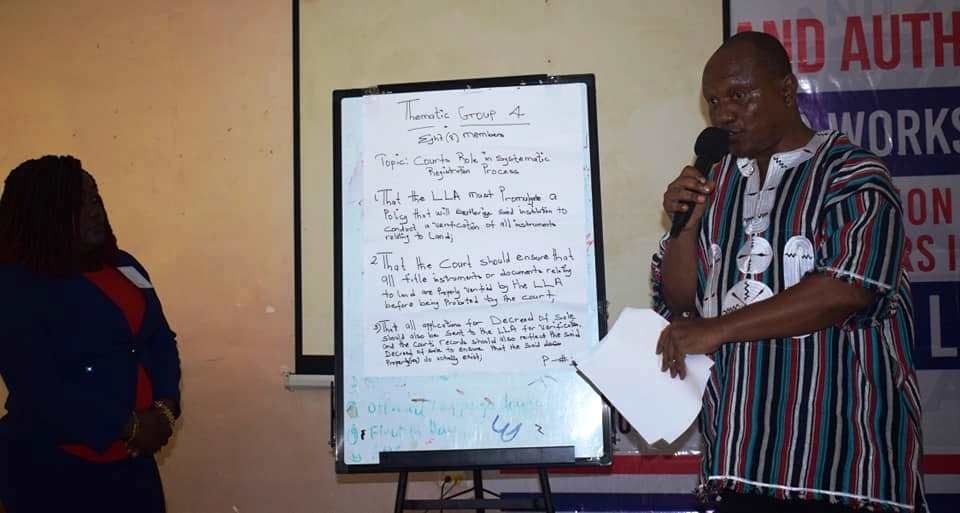 Thematic Group 4
Eight (8) members
Topic: Courts Role in Systematic
Registration Process
1. That the LLA must Promulgate a
Policy that will authorize said institution to
conduct a verification of all instruments
relating to Land;
2. That the Court should ensure that
all title instruments or documents relating
to land are properly verified by the LLA
before being Probated by the court;
3) That all applications for Decreed of Sale
should also be sent to the LLA for verification
and the Courts records should also reflect the said
Decreed of sale to ensure that the said
Property(ies) do actually exist;
P-#
AND AUTH
WORKS
ION
RS I
L